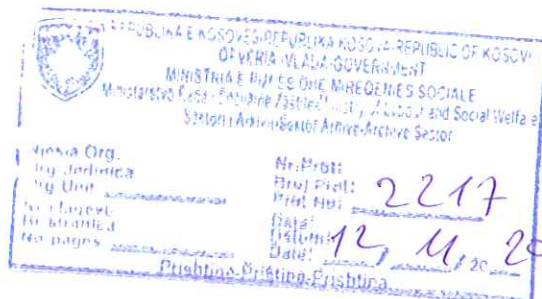 REPUBLIKA E KOSOVËS-REPUBLIKA KOSOVA-REPUBLIC OF KOSOV
QEVERIA-VLADA-GOVERNMENT
MINISTRIA E PUNËS DHE MIRËQENIES SOCIALE
Ministarstvo Rada Socijalne and Social Welfare
Sektori i Arkivit-Sektor Arhive-Archive Sector
Njësia Org.
Org. Jedinica
Org. Unit
Nr. i faqeve
Br. stranica
No. pages
Nr. Prot:
Broj Prot:
Prot No: 2217
Data:
Datum:
Date: 12 / 11 / 20 20
Prishtina-Priština-Prishtina